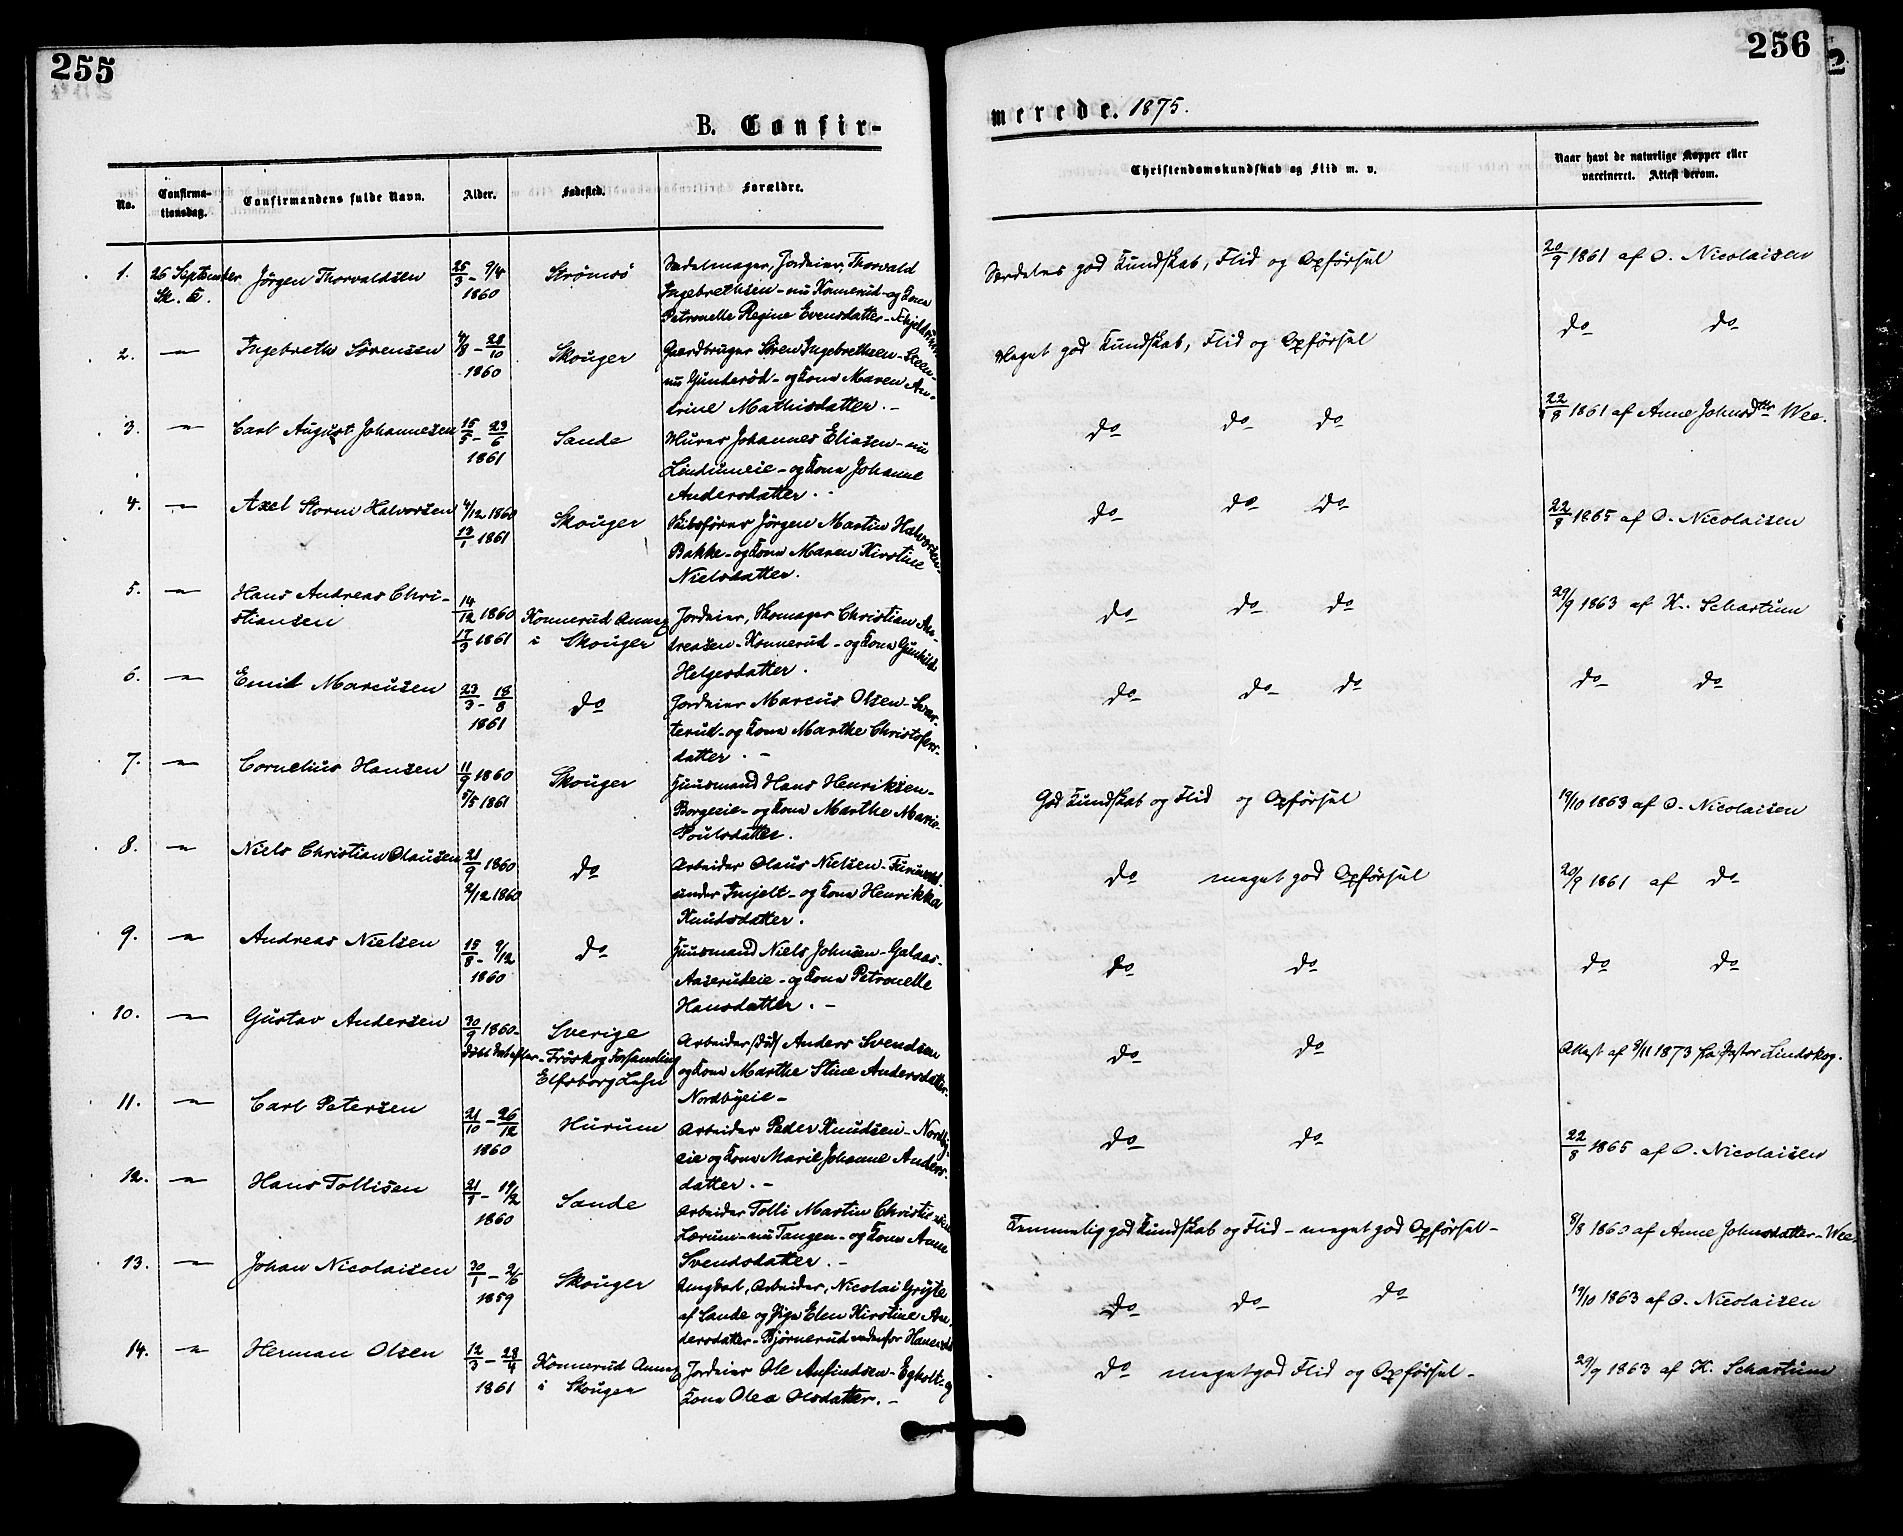 255
256
B. Confir-
merede. 1875.
No.
Confirma-
tionsdag.
Confirmandens fulde Navn.
Alder.
Fødested.
Forældre.
Christendomskundskab og Flid m. v.
Naar havt de naturlige Kopper eller
vaccineret. Attest derom.
1.
26 September
Sk. K.
Jörgen Thorvaldsen
25/3 - 9/4
1860
Strømsö
Sadelmager, Jordeier, Thorvald
Ingebrethsen - nu Konnerud - og Kone
Petronelle Regine Evensdatter -
Særdeles god Kundskab, Flid og Opførsel
20/9 1861 af O. Nicolaisen
2.
Ingebreth Sørensen
4/8 - 28/10
1860
Skouger
Gaardbruger Søren Ingebrethsen - Steen -
nu Gunderød - og Kone Maren An-
drine Mathisdatter. -
Meget god Kundskab, Flid og Opførsel
do do
3.
Carl August Johannesen
15/5 - 23/6
1861
Sande
Murer Johannes Eliasen - nu
Lindumeie - og Kone Johanne
Andersdatter. -
do do do
22/8 1861 af Anne Johnsdtr Wee.
4.
Axel Storm Halvorsen
4/12 1860
13/1 1861
Skouger
Skibsfører Jörgen Martin Halvorsen
Bakke - og Kone Maren Kirstine
Nielsdatter.
do do do
22/8 1865 af O. Nicolaisen
5.
Hans Andreas Chri-
stiansen
14/12 1860
17/3 1861
Konnerud Annex
i Skouger
Jordeier, Skomager Christian An-
dreasen - Konnerud - og Kone Gunhild
Helgesdatter.
do do do
29/9 1863 af K. Schartum
6.
Emil Marcusen
23/3 - 18/8
1861
do
Jordeier Marcus Olsen - Svar-
terud - og Kone Marthe Christofers-
datter. -
do do do
do do
7.
Cornelius Hansen
11/9 1860
5/5 1861
Skouger
Huusmand Hans Henriksen -
Borgeeie - og Kone Marthe Marie
Poulsdatter.
God Kundskab og Flid og Opførsel
19/10 1863 af O. Nicolaisen
8.
Niels Christian Olausen
21/9 1860
2/12 1860
do
Arbeider Olaus Nielsen -
under Imjelt - og Kone Henrikka
Knudsdatter.
do meget god Opførsel
20/9 1861 af do
9.
Andreas Nielsen
15/8 - 9/12
1860
do
Huusmand Niels Johnsen - Galaas -
Aaserudeie - og Kone Petronelle
Hansdatter. -
do do
do do
10.
Gustav Andersen
30/9 1860 -
Sverige
Fröskog Forsamling
Elfsborg Lehn
Arbeider Anders Svendsen
og Kone Marthe Stine Andersdatter -
Nordbyeie -
do do
Attest af 9/11 1873 fra Pastor Lindskog.
11.
Carl Petersen
21/10 - 26/12
1860
Hurum
Arbeider Peder Knudsen - Nordby-
eie og Kone Marie Johanne Anders-
datter. -
do do
22/8 1865 af O. Nicolaisen
12.
Hans Tollisen
21/8 - 19/12
1860
Sande
Arbeider Tolli Martin Christiansen
Lærum - nu Tangen - og Kone Anne
Svendsdatter. -
Temmelig god Kundskab og Flid - meget god Opførsel -
8/8 1860 af Anne Johnsdatter - Wee
13.
Johan Nicolaisen
30/1 - 2/6
1859
Skouger
Ungkarl, Arbeider, Nicolai Gryte
af Sande og Pige Elen Kirstine An-
dersdatter - Bjørnerud
do do do
19/10 1863 af O. Nicolaisen
14.
Herman Olsen
12/3 - 28/4
1861
Konnerud Annex
i Skouger
Jordeier Ole Anfindsen - Egholt og
Kone Olea Olsdatter. -
do meget god Flid og Opførsel -
29/9 1863 af K. Schartum